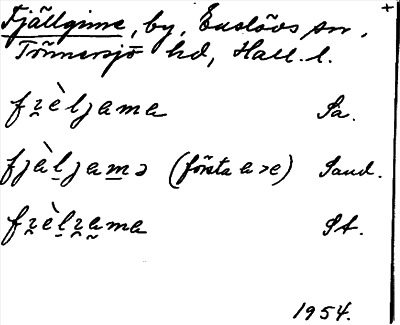 Fjällginne, by, Enslövs sn,
Tönnersjö hd, Hall. l.
+
fɀèljama Sa.
fjàl̲jam̲ə (första a>e) Sand.
fɀèl̲ɀama St.
1954.